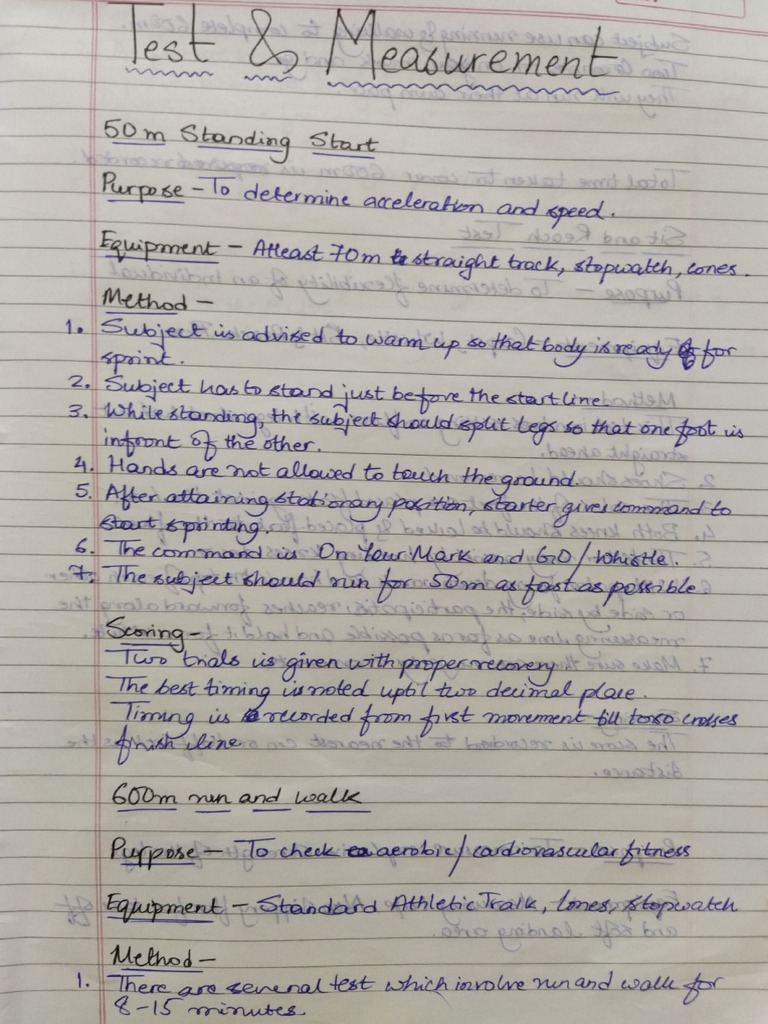 Test & Measurement
50m Standing Start
Purpose - To determine acceleration and speed.
Equipment - Atleast 70m straight track, stopwatch, cones.
Method -
1. Subject is advised to warm up so that body is ready for
sprint.
2. Subject has to stand just before the start line.
3. While standing, the subject should split legs so that one foot is
infront of the other.
4. Hands are not allowed to touch the ground.
5. After attaining stationary position, starter gives command to
start sprinting.
6. The command is On Your Mark and GO/Whistle.
7. The subject should run for 50m as fast as possible
Scoring -
Two trials is given with proper recovery
The best timing is noted uptil two decimal place.
Timing is recorded from first movement till torso crosses
finish line
600m run and walk
Purpose - To check aerobic/cardiovascular fitness
Equipment - Standard Athletic Tralk, Cones, stopwatch
Method -
1. There are several test which involve run and walk for
8-15 minutes.